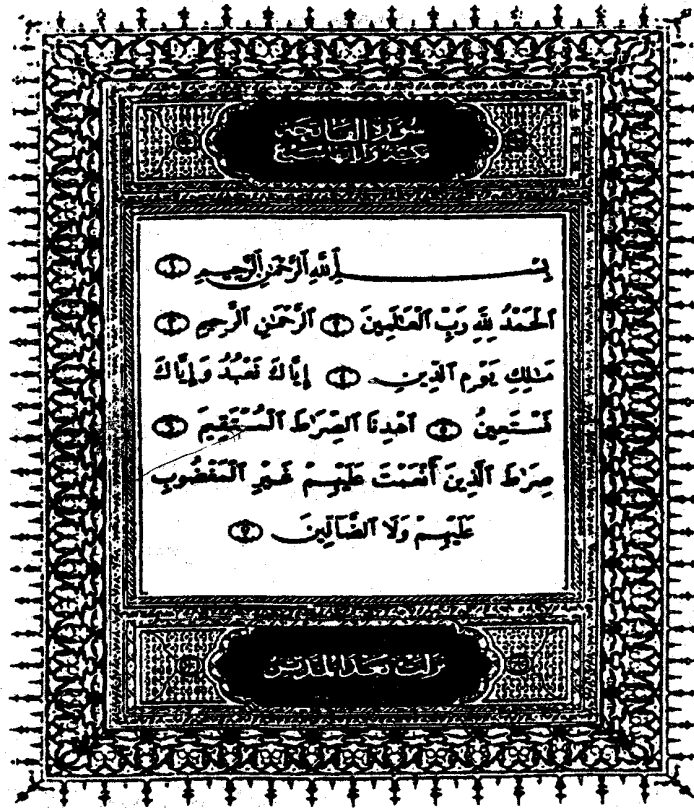 سُورَةُ الفَاتِحَةِ
مكيّة وآياتها سَبْع
بِسْمِ ٱللَّهِ ٱلرَّحْمَٰنِ ٱلرَّحِيمِ ١
ٱلْحَمْدُ لِلَّهِ رَبِّ ٱلْعَٰلَمِينَ ٢ ٱلرَّحْمَٰنِ ٱلرَّحِيمِ ٣
مَٰلِكِ يَوْمِ ٱلدِّينِ ٤ إِيَّاكَ نَعْبُدُ وَإِيَّاكَ
نَسْتَعِينُ ٥ ٱهْدِنَا ٱلصِّرَٰطَ ٱلْمُسْتَقِيمَ ٦
صِرَٰطَ ٱلَّذِينَ أَنْعَمْتَ عَلَيْهِمْ غَيْرِ ٱلْمَغْضُوبِ
عَلَيْهِمْ وَلَا ٱلضَّآلِّينَ ٧
نزلت بعد المدثر